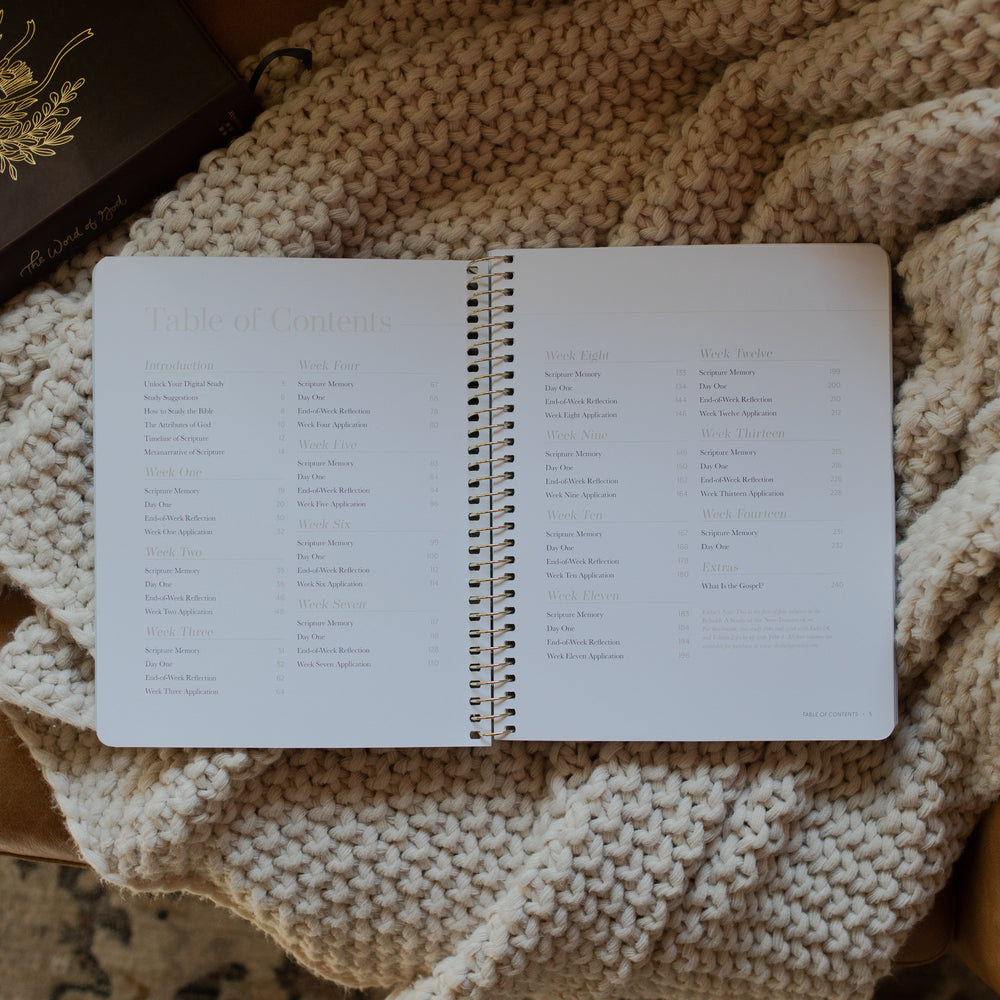 The Word of God
Table of Contents
Introduction
Unlock Your Digital Study 5
Study Suggestions 6
How to Study the Bible 8
The Attributes of God 10
Timeline of Scripture 12
Metanarrative of Scripture 14
Week One
Scripture Memory 19
Day One 20
End-of-Week Reflection 30
Week One Application 32
Week Two
Scripture Memory 35
Day One 36
End-of-Week Reflection 46
Week Two Application 48
Week Three
Scripture Memory 51
Day One 52
End-of-Week Reflection 62
Week Three Application 64
Week Four
Scripture Memory 67
Day One 68
End-of-Week Reflection 78
Week Four Application 80
Week Five
Scripture Memory 83
Day One 84
End-of-Week Reflection 94
Week Five Application 96
Week Six
Scripture Memory 99
Day One 100
End-of-Week Reflection 112
Week Six Application 114
Week Seven
Scripture Memory 117
Day One 118
End-of-Week Reflection 128
Week Seven Application 130
Week Eight
Scripture Memory 133
Day One 134
End-of-Week Reflection 144
Week Eight Application 146
Week Nine
Scripture Memory 149
Day One 150
End-of-Week Reflection 162
Week Nine Application 164
Week Ten
Scripture Memory 167
Day One 168
End-of-Week Reflection 178
Week Ten Application 180
Week Eleven
Scripture Memory 183
Day One 184
End-of-Week Reflection 194
Week Eleven Application 196
Week Twelve
Scripture Memory 199
Day One 200
End-of-Week Reflection 210
Week Twelve Application 212
Week Thirteen
Scripture Memory 215
Day One 216
End-of-Week Reflection 226
Week Thirteen Application 228
Week Fourteen
Scripture Memory 231
Day One 232
Extras
What Is the Gospel? 240
TABLE OF CONTENTS • 5